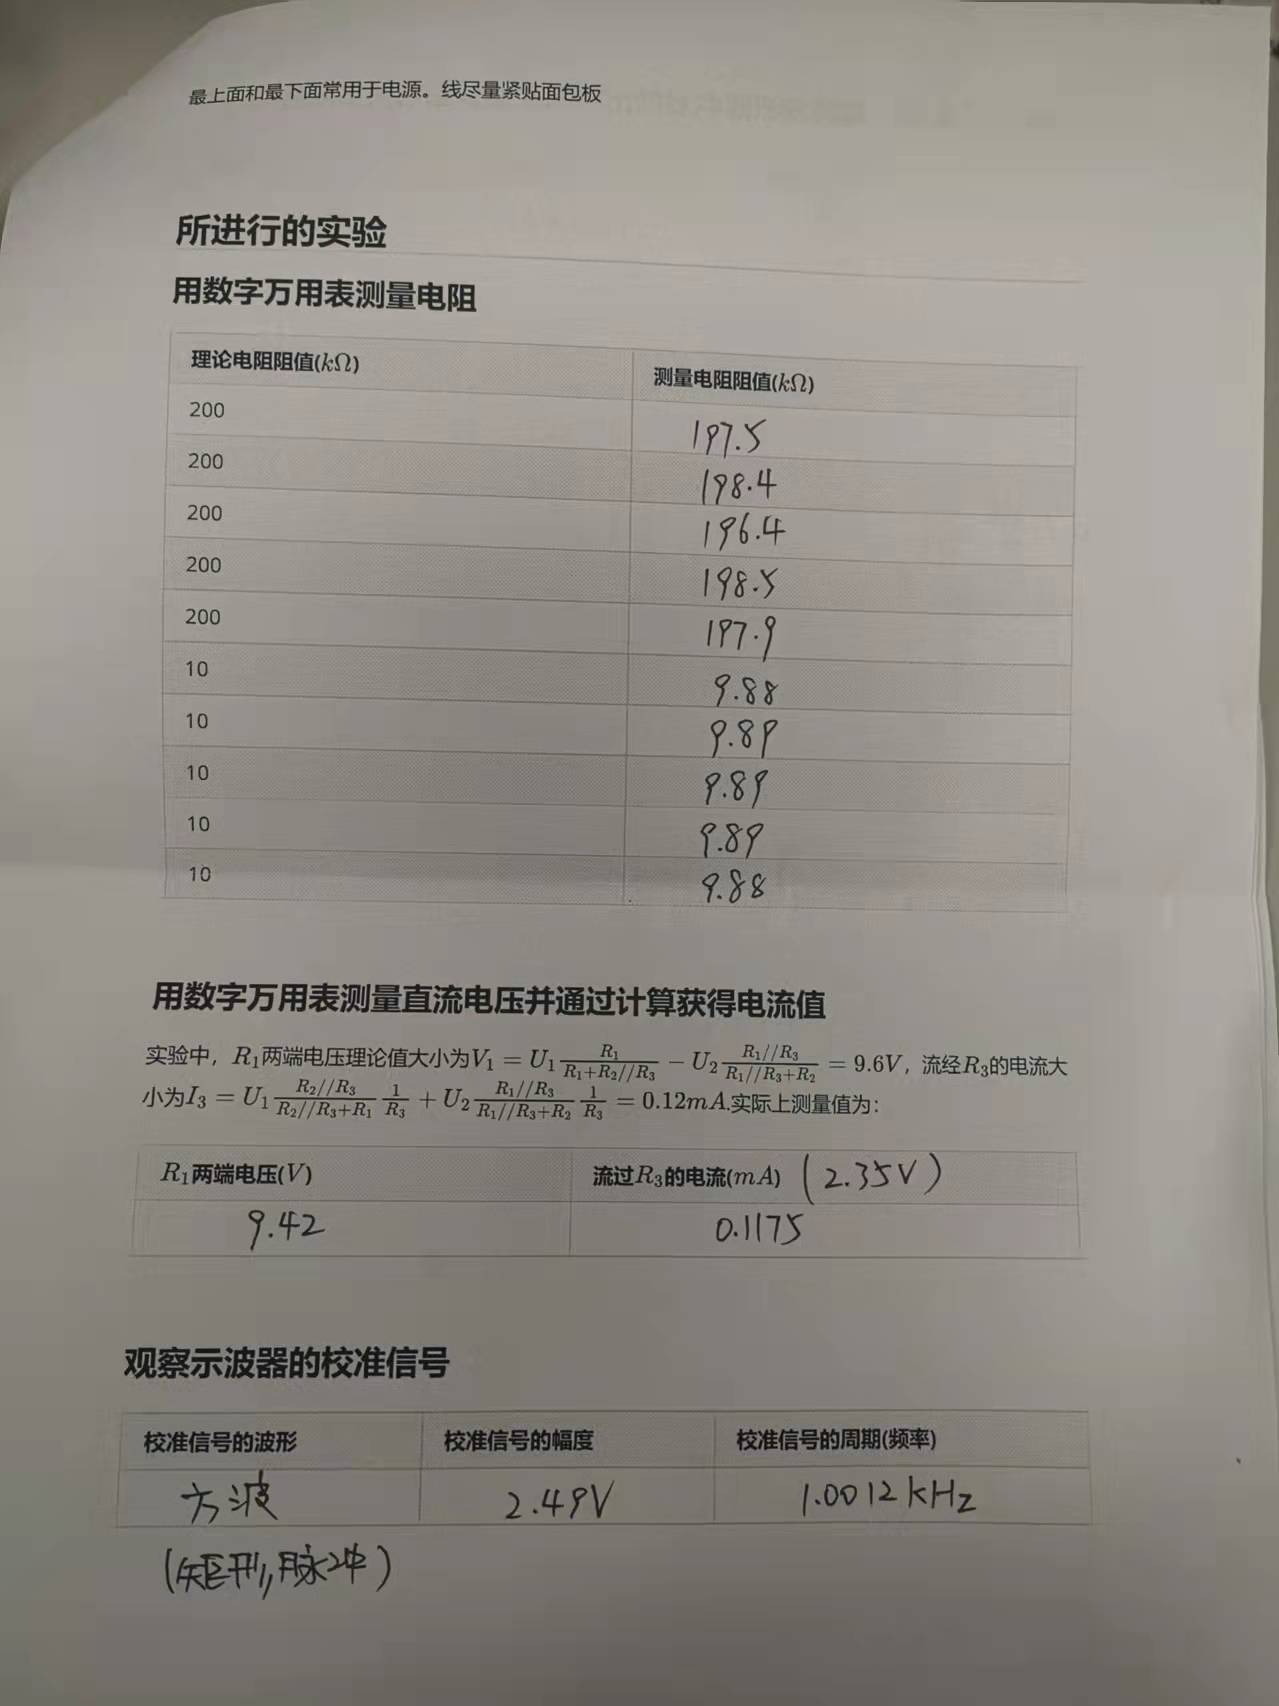 最上面和最下面常用于电源。线尽量紧贴面包板
所进行的实验
用数字万用表测量电阻
理论电阻阻值(kΩ) 测量电阻阻值(kΩ)
200 197.5
200 198.4
200 196.4
200 198.5
200 197.9
10 9.88
10 9.89
10 9.89
10 9.89
10 9.88
用数字万用表测量直流电压并通过计算获得电流值
实验中，R₁两端电压理论值大小为V₁ = U₁ R₁/(R₁+R₂//R₃) − U₂ R₁//R₃/(R₁//R₃+R₂) = 9.6V，流经R₃的电流大
小为I₃ = U₁ R₂//R₃/(R₂//R₃+R₁) 1/R₃ + U₂ R₁//R₃/(R₁//R₃+R₂) 1/R₃ = 0.12mA.实际上测量值为：
R₁两端电压(V) 流过R₃的电流(mA) (2.35V)
9.42 0.1175
观察示波器的校准信号
校准信号的波形 校准信号的幅度 校准信号的周期(频率)
方波 2.49V 1.0012kHz
(矩形,脉冲)